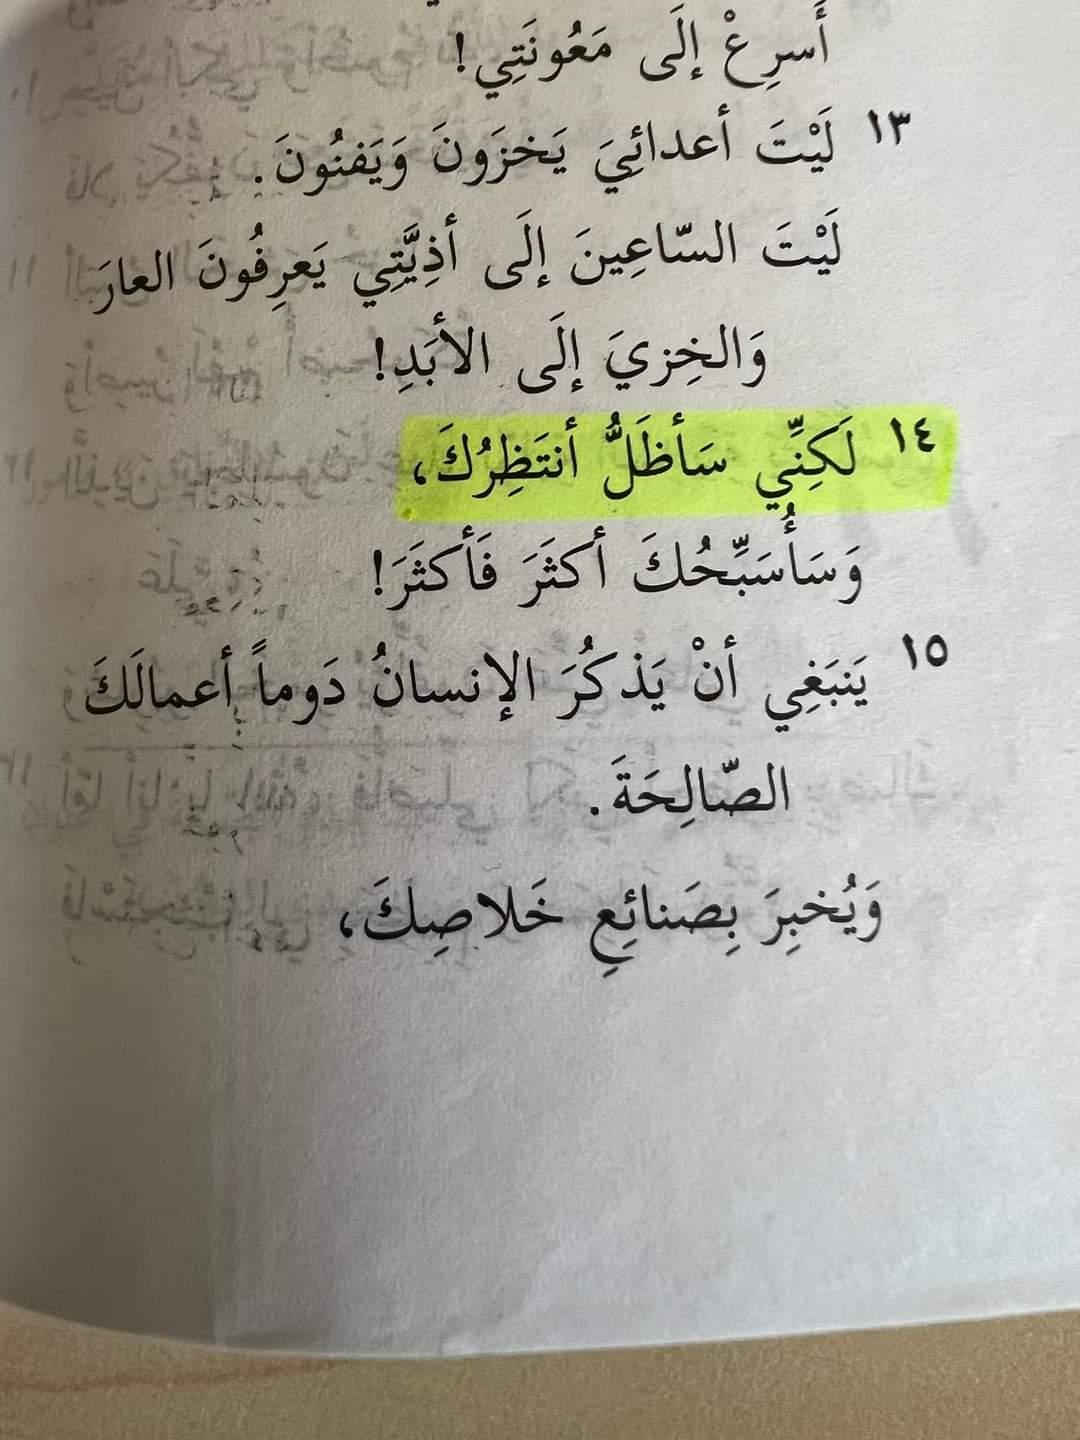 أَسرِعْ إلَى مَعُونَتِي!
١٣ لَيْتَ أعدائِيَ يَخزَونَ وَيَفنُونَ.
لَيْتَ السّاعِينَ إلَى أذِيَّتِي يَعرِفُونَ العارَ
وَالخِزيَ إلَى الأبَدِ!
١٤ لَكِنِّي سَأظَلُّ أنتَظِرُكَ،
وَسَأُسَبِّحُكَ أكثَرَ فَأكثَرَ!
١٥ يَنبَغِي أنْ يَذكُرَ الإنسانُ دَوماً أعمالَكَ
الصّالِحَةَ.
وَيُخبِرَ بِصَنائِعِ خَلاصِكَ،